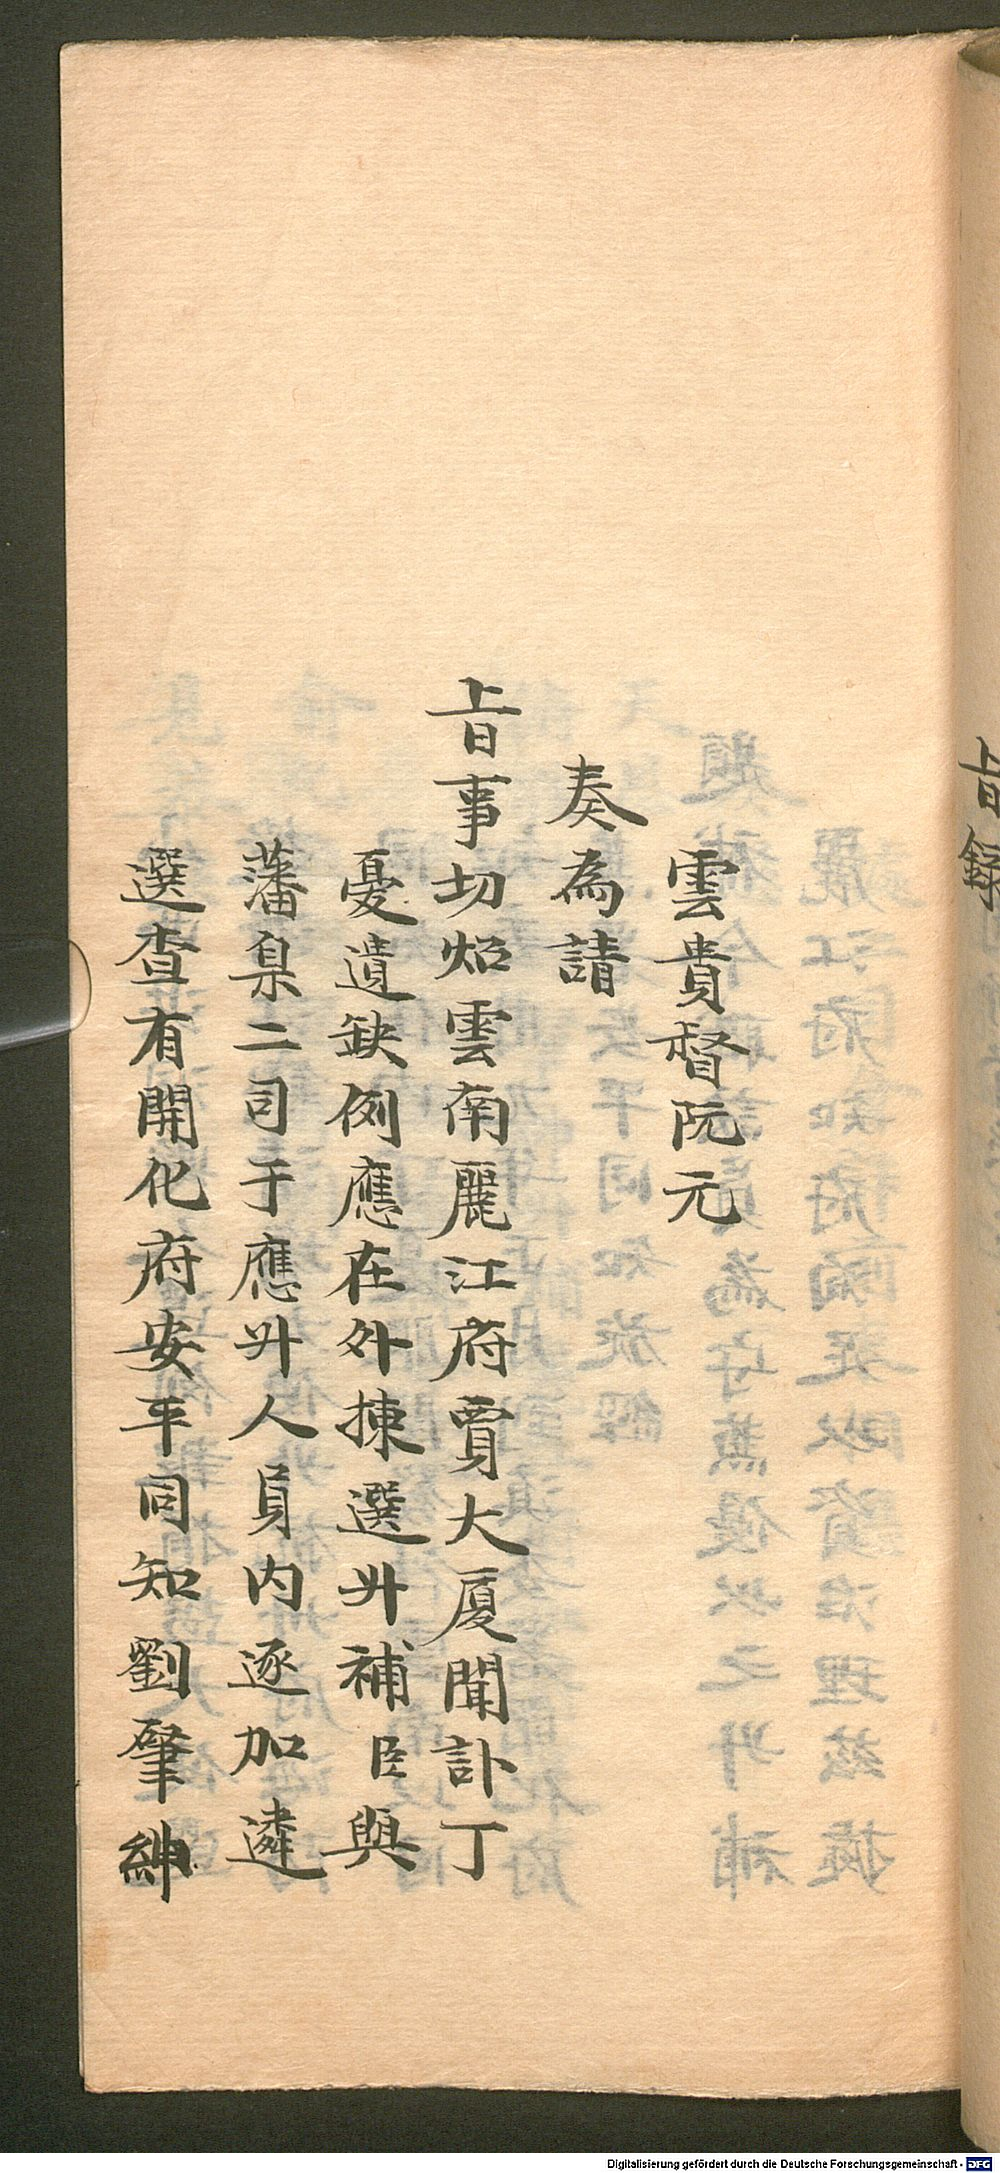 旨録
雲貴督阮元
奏為請
旨事切炤雲南麗江府賈大厦聞訃丁
憂遺缺例應在外揀選升補臣與
藩臬二司于應升人員内逐加遴
選查有開化府安平同知劉肇紳
Digitalisierung gefördert durch die Deutsche Forschungsgemeinschaft - DFG